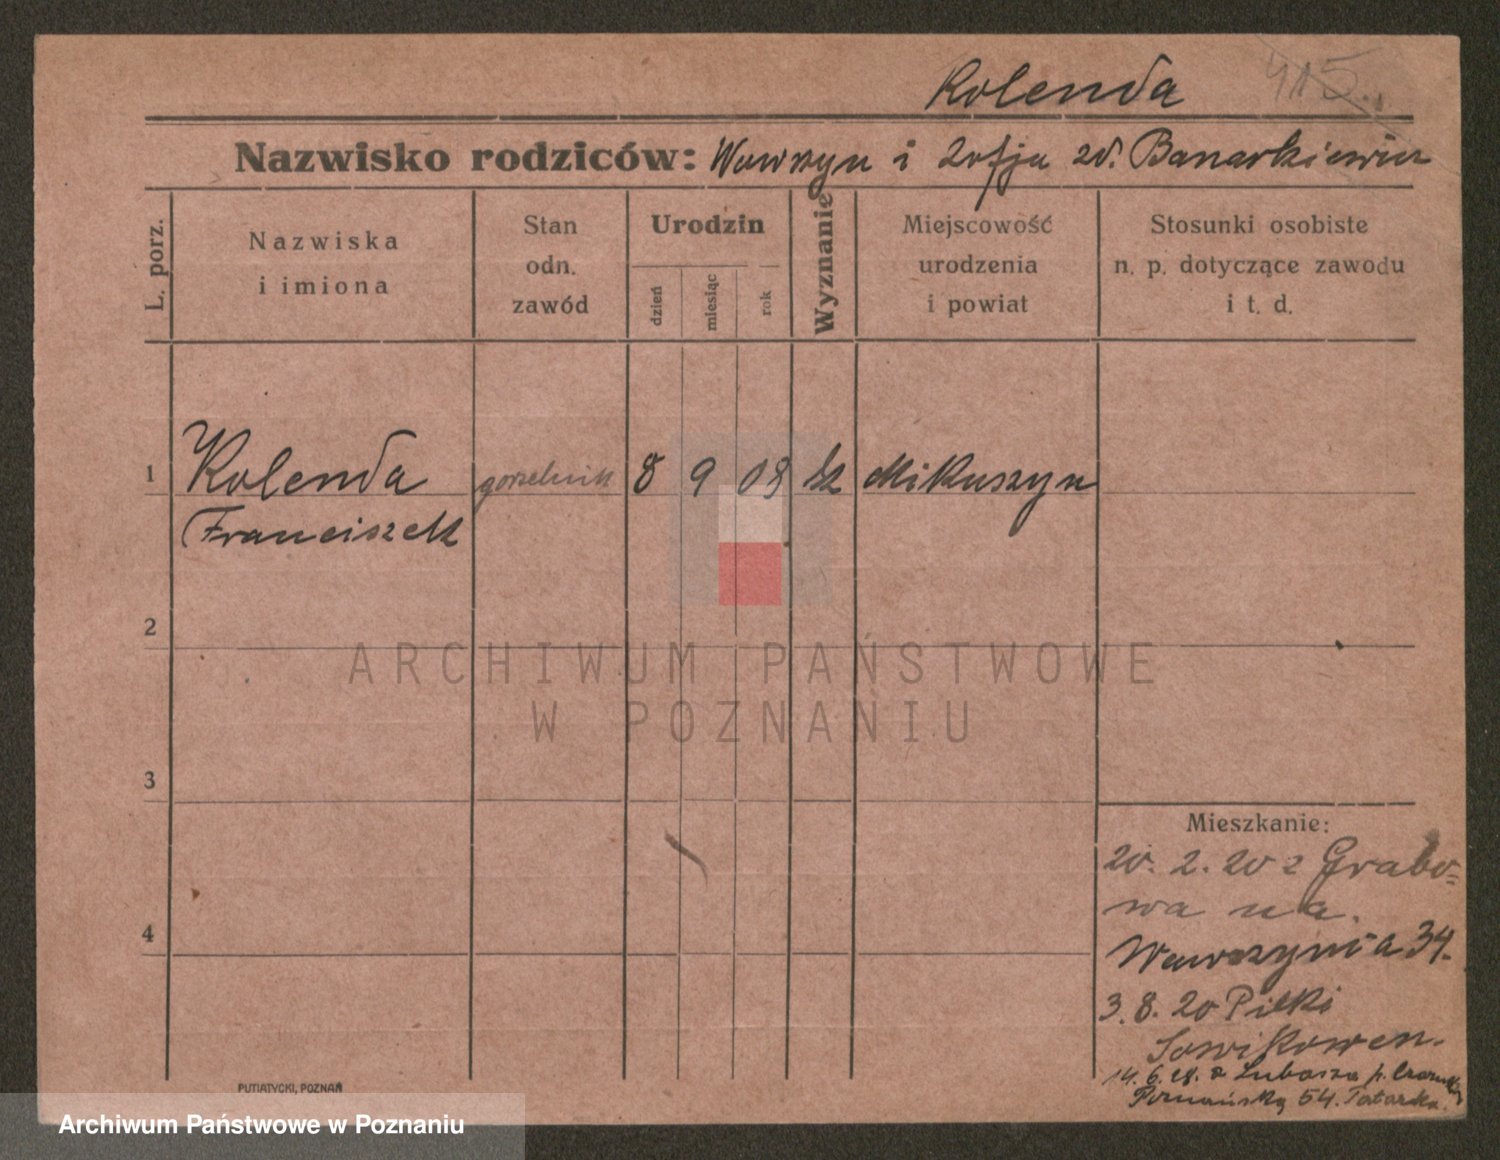 Kolenda 415
Nazwisko rodziców: Wawrzyn i Zofja zd. Banarkiewicz
L. porz.
Nazwiska
i imiona
Stan
odn.
zawód
Urodzin
dzień
miesiąc
rok
Wyznanie
Miejscowość
urodzenia
i powiat
Stosunki osobiste
n. p. dotyczące zawodu
i t. d.
1 Kolenda gorzelnik 8 9 08 Mikuszyn
Franciszek
2
ARCHIWUM PAŃSTWOWE
W POZNANIU
3
4
Mieszkanie:
20. 2. 20 z Grabo=
wa na
Wawrzynia 34.
3. 8. 20 Piłki
14. 6. 28. z Lubasza p.
Poznańską 54.
PUTIATYCKI, POZNAŃ
Archiwum Państwowe w Poznaniu